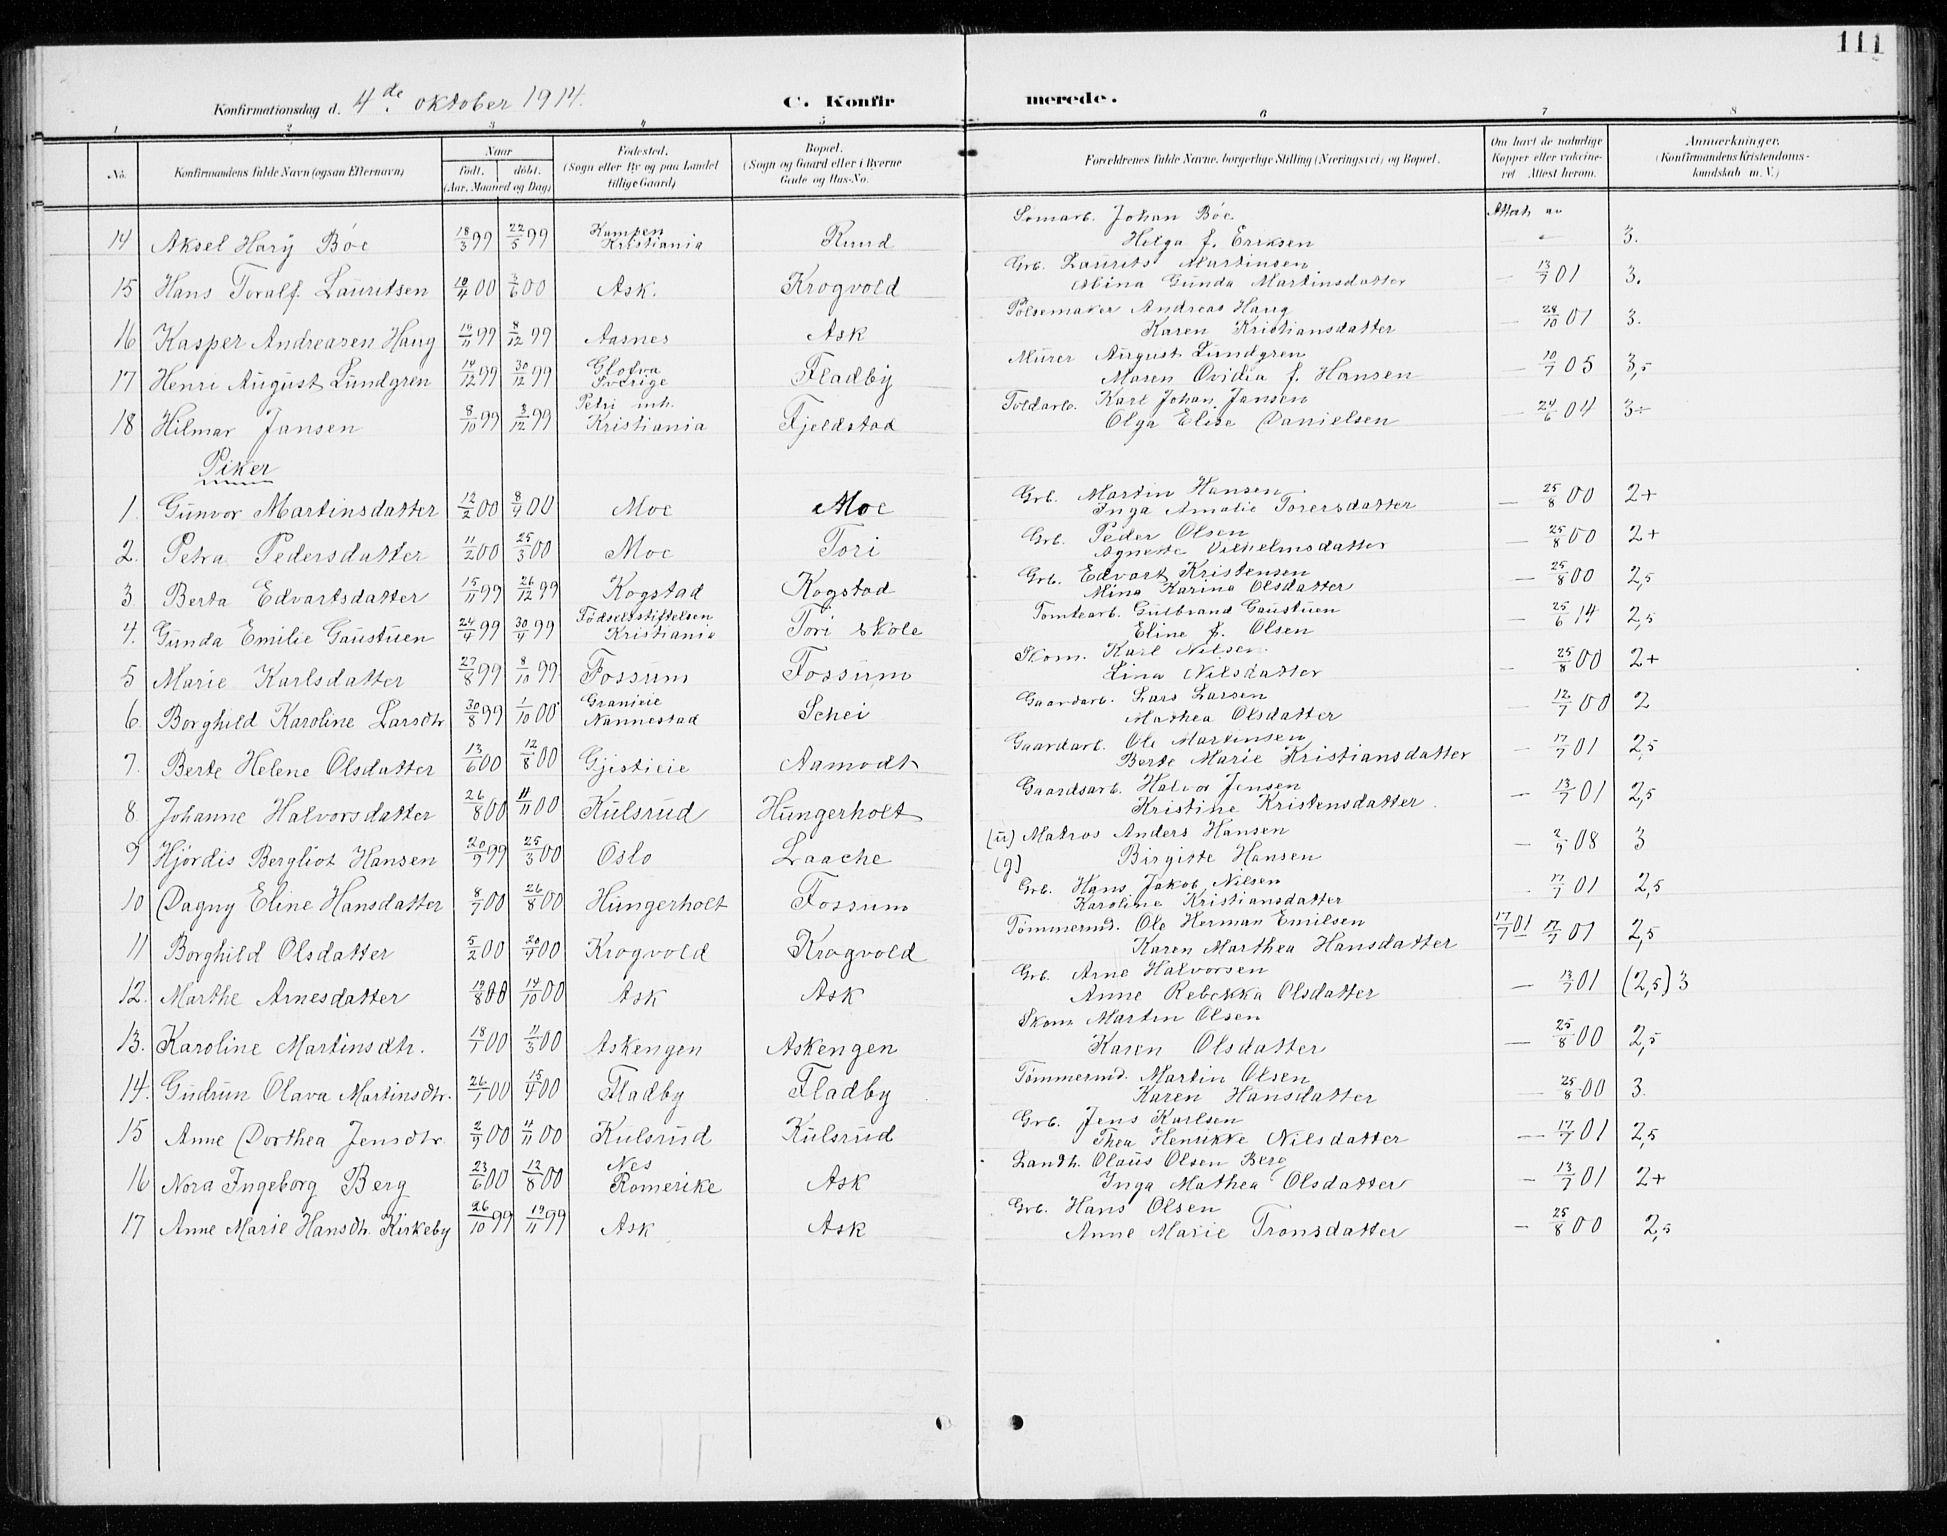 111
Konfirmationsdag d. 4de oktober 1914.
C. Konfir merede.
1 2 3 4 5 6 7 8
No. Konfirmandens fulde Navn (ogsaa Efternavn) Naar født. døbt. (Aar, Maaned og Dag) Fødested. (Sogn eller By og paa Landet tillige Gaard) Bopæl. (Sogn og Gaard eller i Byerne Gade og Hus-No. Forældrenes fulde Navne, borgerlige Stilling (Næringsvei) og Bopæl. Om havt de naturlige Kopper eller vakcineret Attest herom. Anmerkninger. (Konfirmandens Kristendomskundskab m. V.)
14 Aksel Harÿ Böe 18/3 99 22/5 99 Kampen Kristiania Ruud Johan Böe Helga f. Eriksen Attest av 3.
15 Hans Toralf Lauritsen 00 3/6 00 Ask. Krogvold Grb. Laurits Martinsen Abina Gunda Martinsdatter — 13/7 01 3.
16 Kasper Andreasen Haug 99 8/12 99 Aasnes Ask Pölsemaker Andreas Haug Karen Kristiansdatter — 28/10 01 3.
17 Henri August Lundgren 14/12 99 30/12 99 Sverige Fladby Murer August Lundgren Maren Ovidia f. Hansen — 10/7 05 3,5
18 Hilmar Jansen 8/10 99 3/12 99 Petri inh. Kristiania Fjeldstad Toldarb. Karl Johan Jansen Olga Elise Danielsen — 24/6 04 3÷
Piker
1. Gunvor Martinsdatter 12/2 00 8/4 00 Moe Moe Grb. Martin Hansen Inga Amalie Torersdatter — 25/8 00 2+
2. Petra Pedersdatter 11/2 00 25/3 00 Moe Tori Grb. Peder Olsen Agnete Vilhelmsdatter — 25/8 00 2+
3 Berta Edvartsdatter 15/11 99 26/12 99 Kogstad Kogstad Grb. Edvart Kristensen Mina Karina Olsdatter — 25/8 00 2,5
4. Gunda Emilie Gaustuen 24/4 99 30/4 99 Födselsstiftelsen Kristiania Tori skole Tomtearb. Gulbrand Gaustuen Eline f. Olsen — 25/6 14 2,5
5 Marie Karlsdatter 27/8 99 8/10 99 Fossum Fossum Skom. Karl Nilsen Lina Nilsdatter — 25/8 00 2+
6. Borghild Karoline Larsdtr 30/8 99 1/10 00 Granieie Nannestad Schei Gaardarb. Lars Larsen Mathea Olsdatter — 12/7 00 2
7. Berte Helene Olsdatter 13/6 00 12/8 00 Gjistieie Aamodt Gaardarb. Ole Martinsen Berte Marie Kristiansdatter — 17/7 01 2,5
8 Johanne Halvorsdatter 26/8 00 11/11 00 Kulsrud Hungerholt Gaardsarb. Halvor Jensen Kristine Kristensdatter. — 13/7 01 2,5
9 Hjördis Bergliot Hansen 20/9 99 25/3 00 Oslo Laache (u) Matros Anders Hansen (g) Birgitte Hansen — 08 3
10 Dagny Eline Hansdatter 8/7 00 26/8 00 Hungerholt Fossum Grb. Hans Jakob Nilsen Karoline Kristiansdatter 17/7 01 2,5
11 Borghild Olsdatter 5/2 00 20/4 00 Krogvold Krogvold Tömmermd. Ole Herman Emilsen Karen Marthea Hansdatter 17/7 01 17/7 01 2,5
12. Marthe Arnesdatter 19/8 00 14/10 00 Ask Ask Grb. Arne Halvorsen Anne Rebekka Olsdatter — 13/7 01 (2,5) 3
13. Karoline Martinsdtr. 18/1 00 11/3 00 Askengen Askengen Skom Martin Olsen Karen Olsdatter — 25/8 00 2,5
14. Gudrun Olava Martinsdtr. 00 15/4 00 Fladby Fladby Tömmermd. Martin Olsen Karen Hansdatter — 25/8 00 3.
15 Anne Dorthea Jensdtr 2/9 00 4/11 00 Kulsrud Kulsrud Grb. Jens Karlsen Thea Henrikke Nilsdatter — 17/7 01 2,5
16 Nora Ingeborg Berg 23/6 00 12/8 00 Nes Romerike Ask Landh. Olaus Olsen Berg Inga Mathea Olsdatter — 13/7 01 2+
17 Anne Marie Hansdtr. Kirkeby 26/10 99 19/11 99 Ask Ask Grb. Hans Olsen Anne Marie Tronsdatter — 25/8 00 2,5